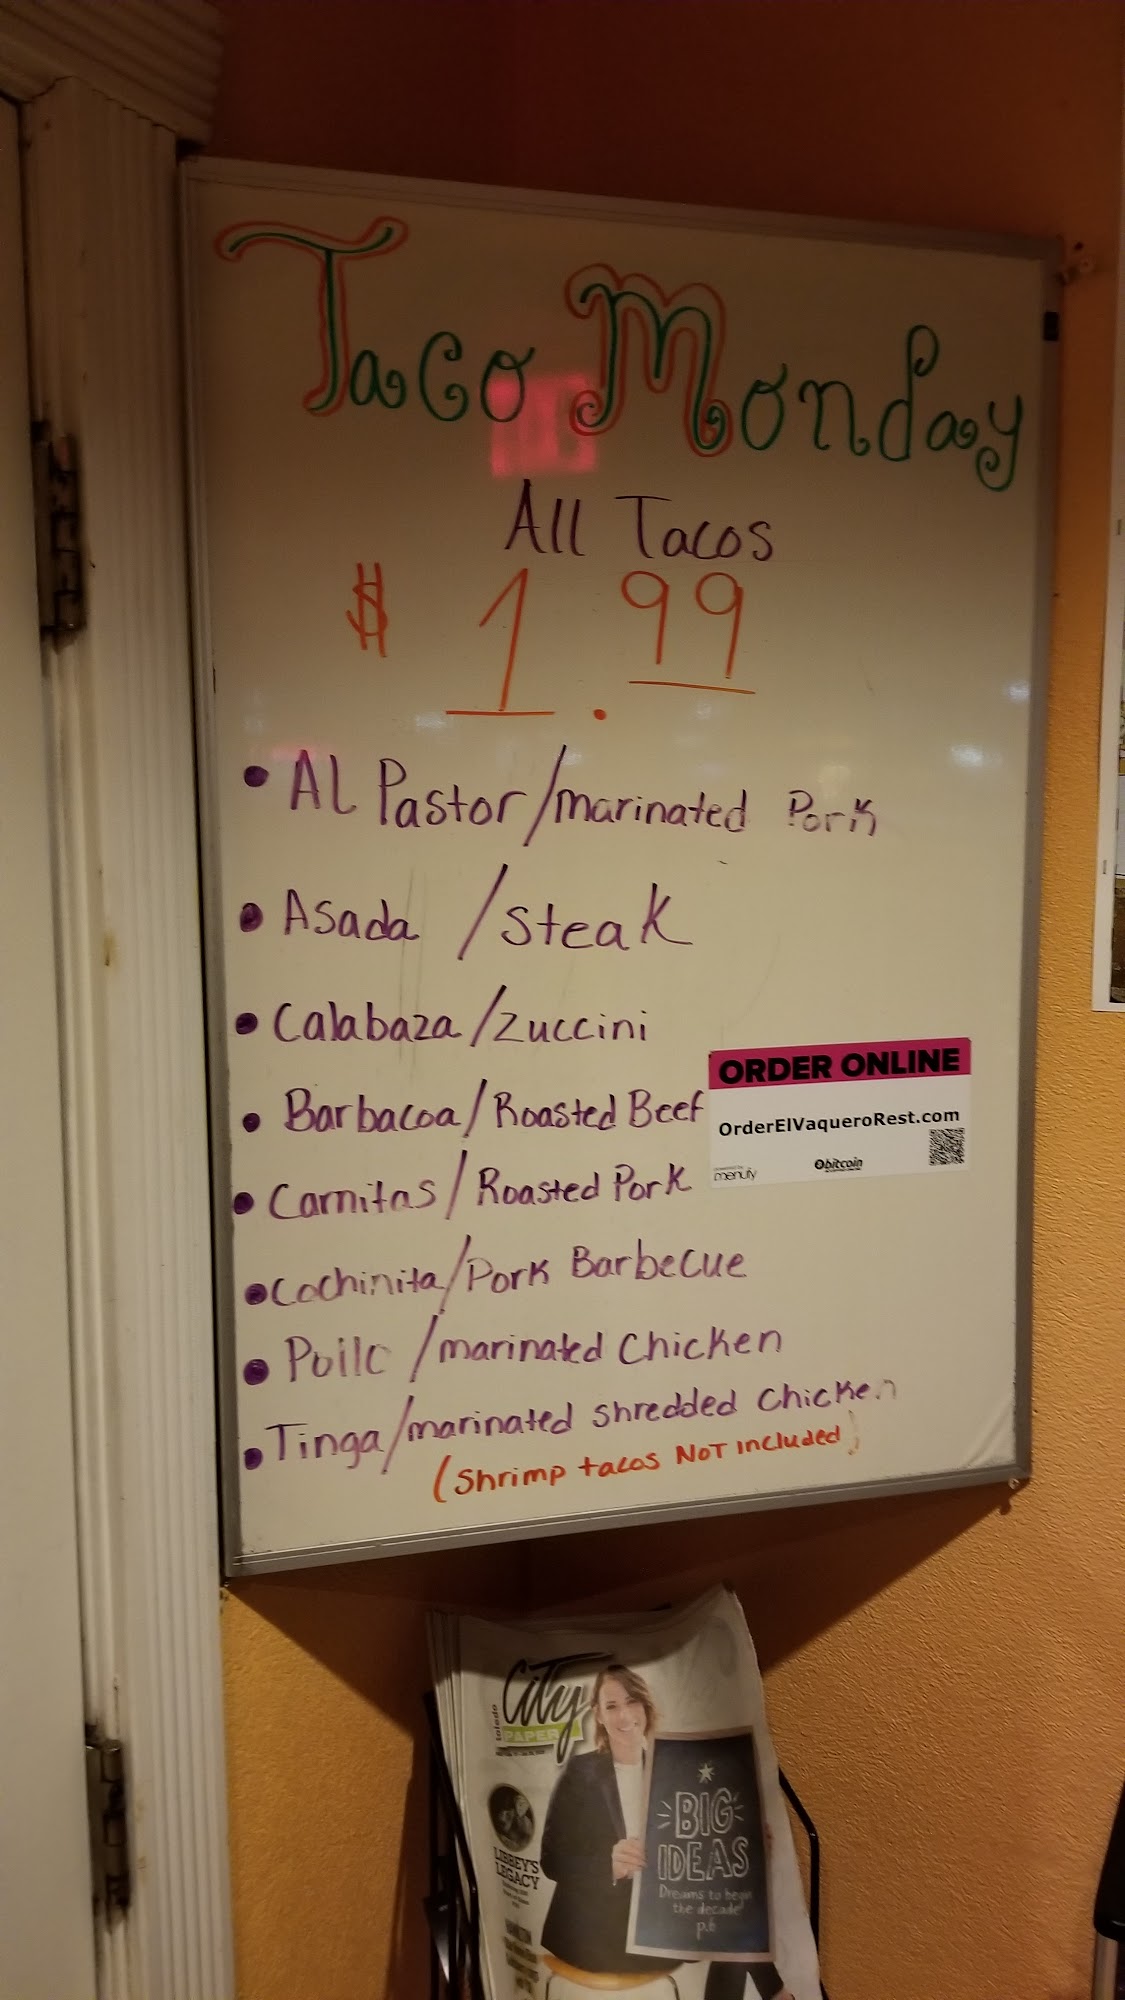 Taco Monday
All Tacos
$ 1.99
• Al Pastor/marinated Pork
• Asada /steak
• Calabaza/Zuccini
• Barbacoa/Roasted Beef
• Carnitas/Roasted Pork
• Cochinita/Pork Barbecue
• Pollo /marinated Chicken
• Tinga/marinated shredded chicken
(Shrimp tacos NOT included)
ORDER ONLINE
OrderElVaqueroRest.com
powered by
menufy
bitcoin
toledo
City
PAPER
LIBBEY'S
LEGACY
BIG
IDEAS
Dreams to begin
the decade
p.6